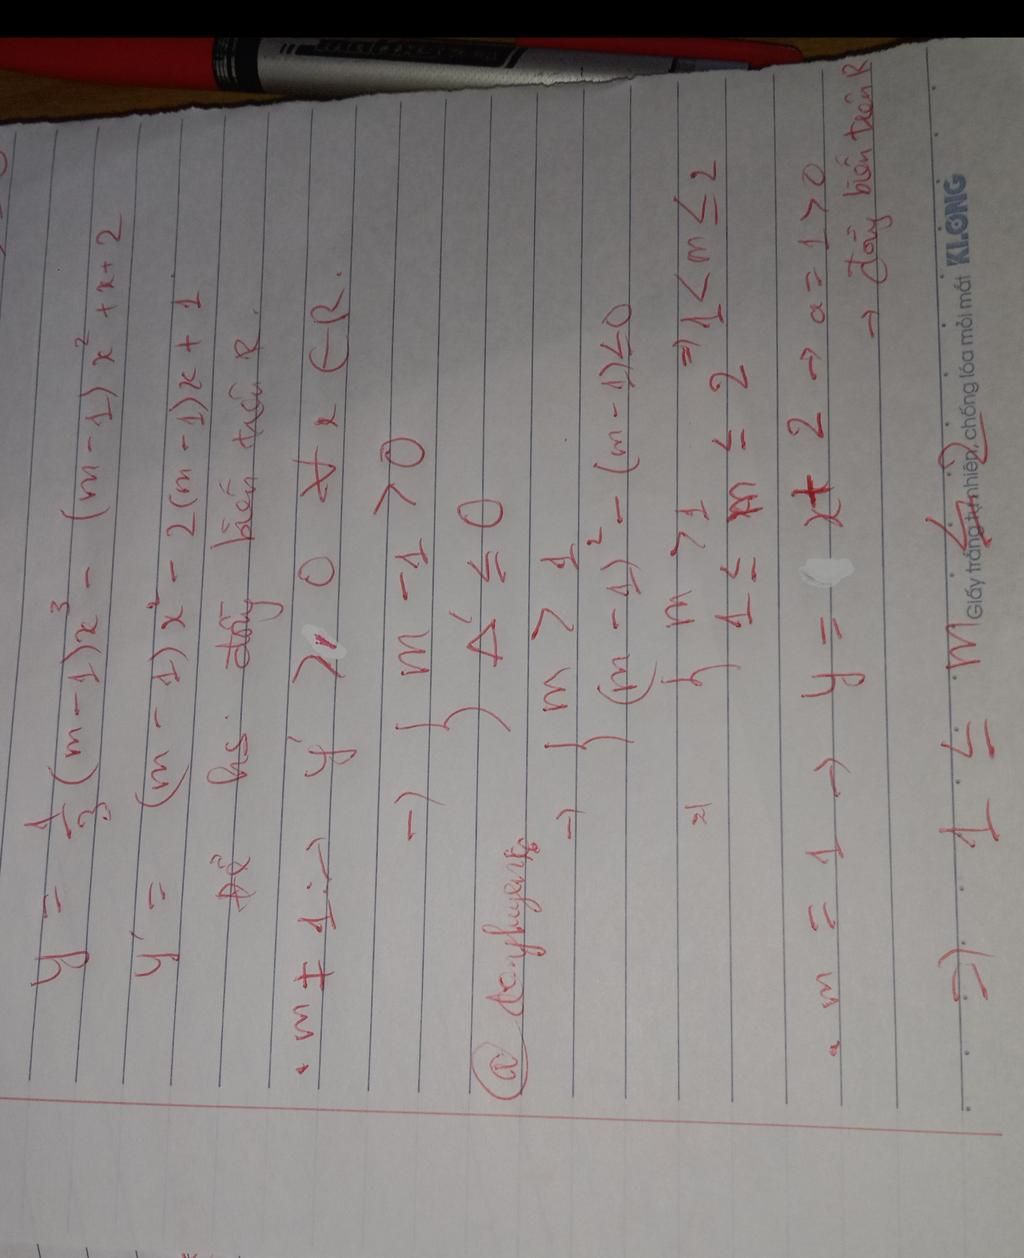 y = 1/3 (m - 1)x³ - (m - 1)x² + x + 2
y' = (m - 1)x² - 2(m - 1)x + 1
Để hs. đồng biến trên R.
• m ≠ 1 → y' ≥ 0 ∀ x ∈ R.
→ { m - 1 > 0
Δ' ≤ 0
@
→ { m > 1
(m - 1)² - (m - 1) ≤ 0
=> { m > 1
1 ≤ m ≤ 2 => 1 < m ≤ 2
• m = 1 → y = x + 2 → a = 1 > 0
→ đồng biến trên R
=> 1 ≤ m ≤ 2
Giấy trắng tự nhiên, chống lóa mỏi mắt KLONG